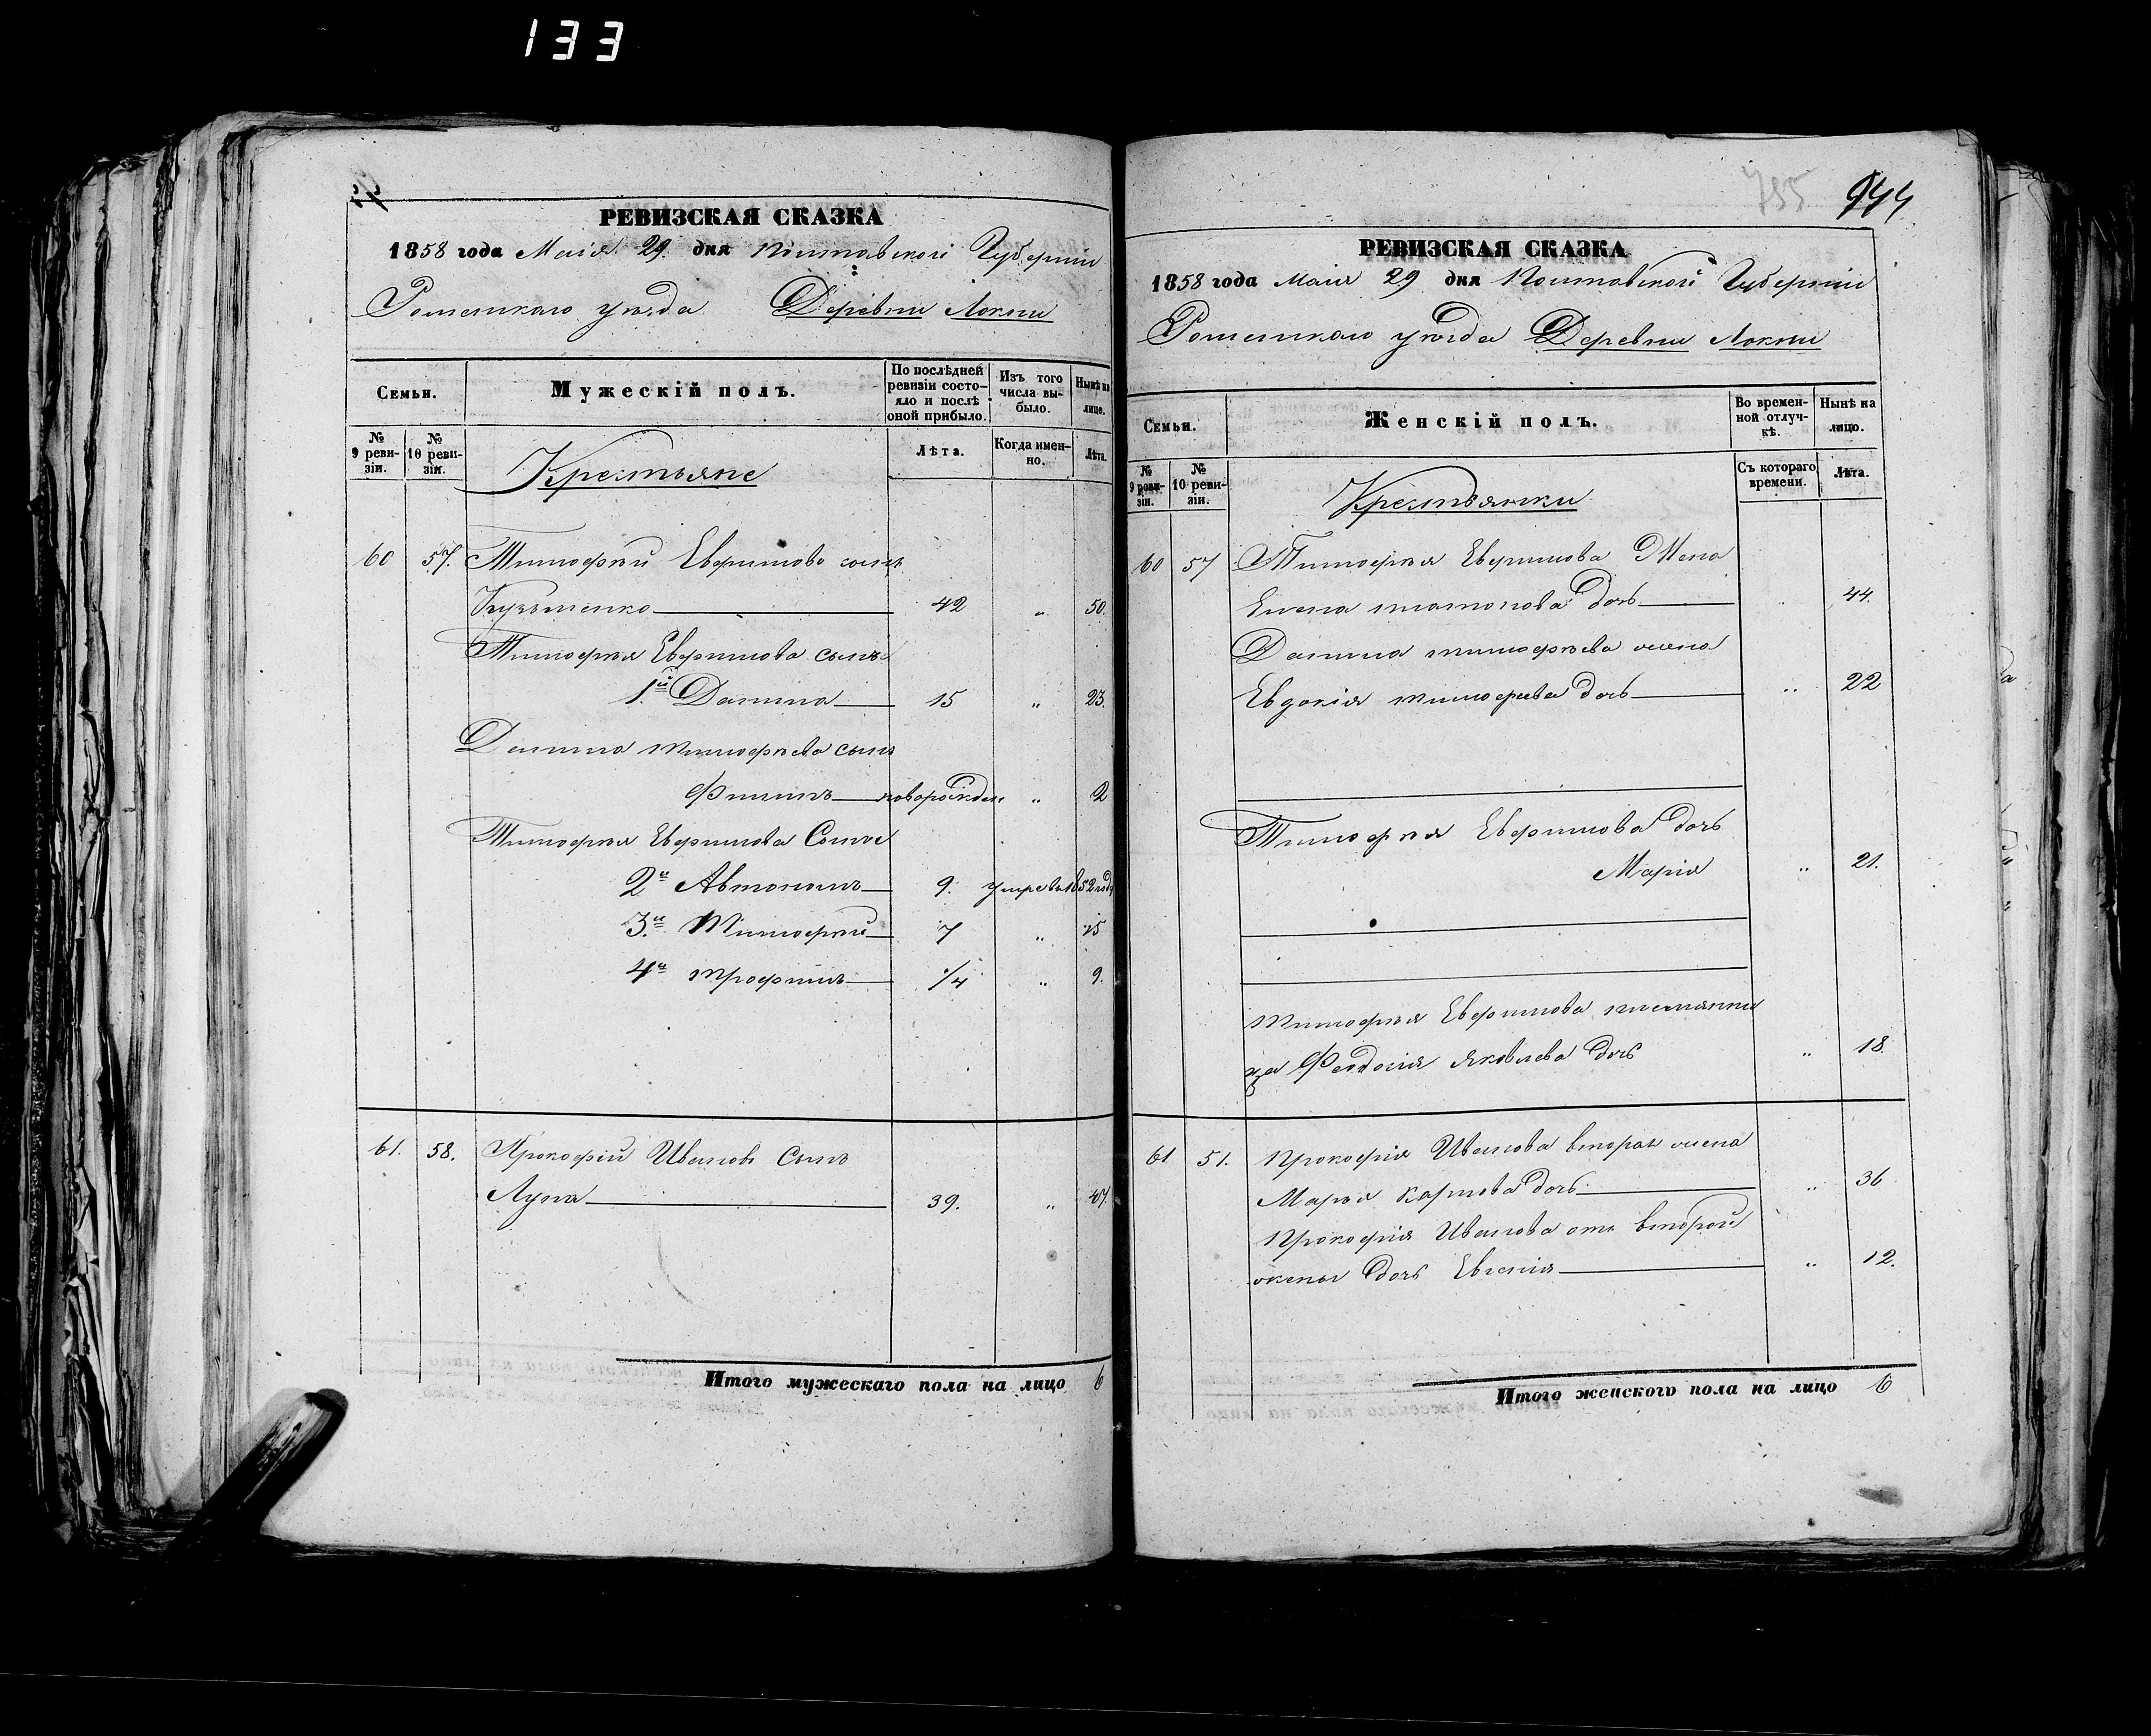 133
РЕВИЗСКАЯ СКАЗКА
1858 года Маія 29. дня Полтавской Губерніи
Роменскаго уѣзда Деревни Локни
Семьи.
Мужескій полъ.
По послѣдней ревизіи состо-
яло и послѣ оной прибыло.
Изъ того числа вы-
было.
Нынѣ на лицо.
№ 9 реви-
зіи.
№ 10 реви-
зіи.
Крестьяне
Лѣта.
Когда имен-
но.
Лѣта.
60 57. Тимофѣй Евфимовъ сынъ
Кузьменко 42 „ 50.
Тимофѣя Евфимова сынъ
1й Данило 15 „ 23.
Данила тимофѣева сынъ
Филипъ новорожден „ 2
Тимофѣя Евфимова Сынъе
2й Автономъ 9. умре въ 1852 годѣ
3й Тимофѣй 7 „ 15
4й трофимъ 1/4 „ 9.
61. 58. Прокофій Ивановъ Сынъ
Лупа 39. „ 47.
Итого мужескаго пола на лицо 6
735 944
РЕВИЗСКАЯ СКАЗКА
1858 года Маія 29 дня Полтавской Губерніи
Роменскаго уѣзда Деревни Локни
Семьи.
Женскій полъ.
Во времен-
ной отлуч-
кѣ.
Нынѣ на лицо.
№ 9 реви-
зіи.
№ 10 реви-
зіи.
Крестьянки
Съ котораго времени.
Лѣта.
60 57 Тимофѣя Евфимова Жена
Елена платонова дочь „ 44.
Данила тимофѣева жена
Евдокія тимофѣева дочь „ 22
Тимофѣя Евфимова дочь
Марія „ 21.
Тимофѣя Евфимова племянни
ца Феодосія Яковлева дочь „ 18.
61 51. Прокофія Иванова вторая жена
Марья Карпова дочь „ 36
Прокофія Иванова отъ второй
жены дочь Евгенія „ 12.
Итого женского пола на лицо 6